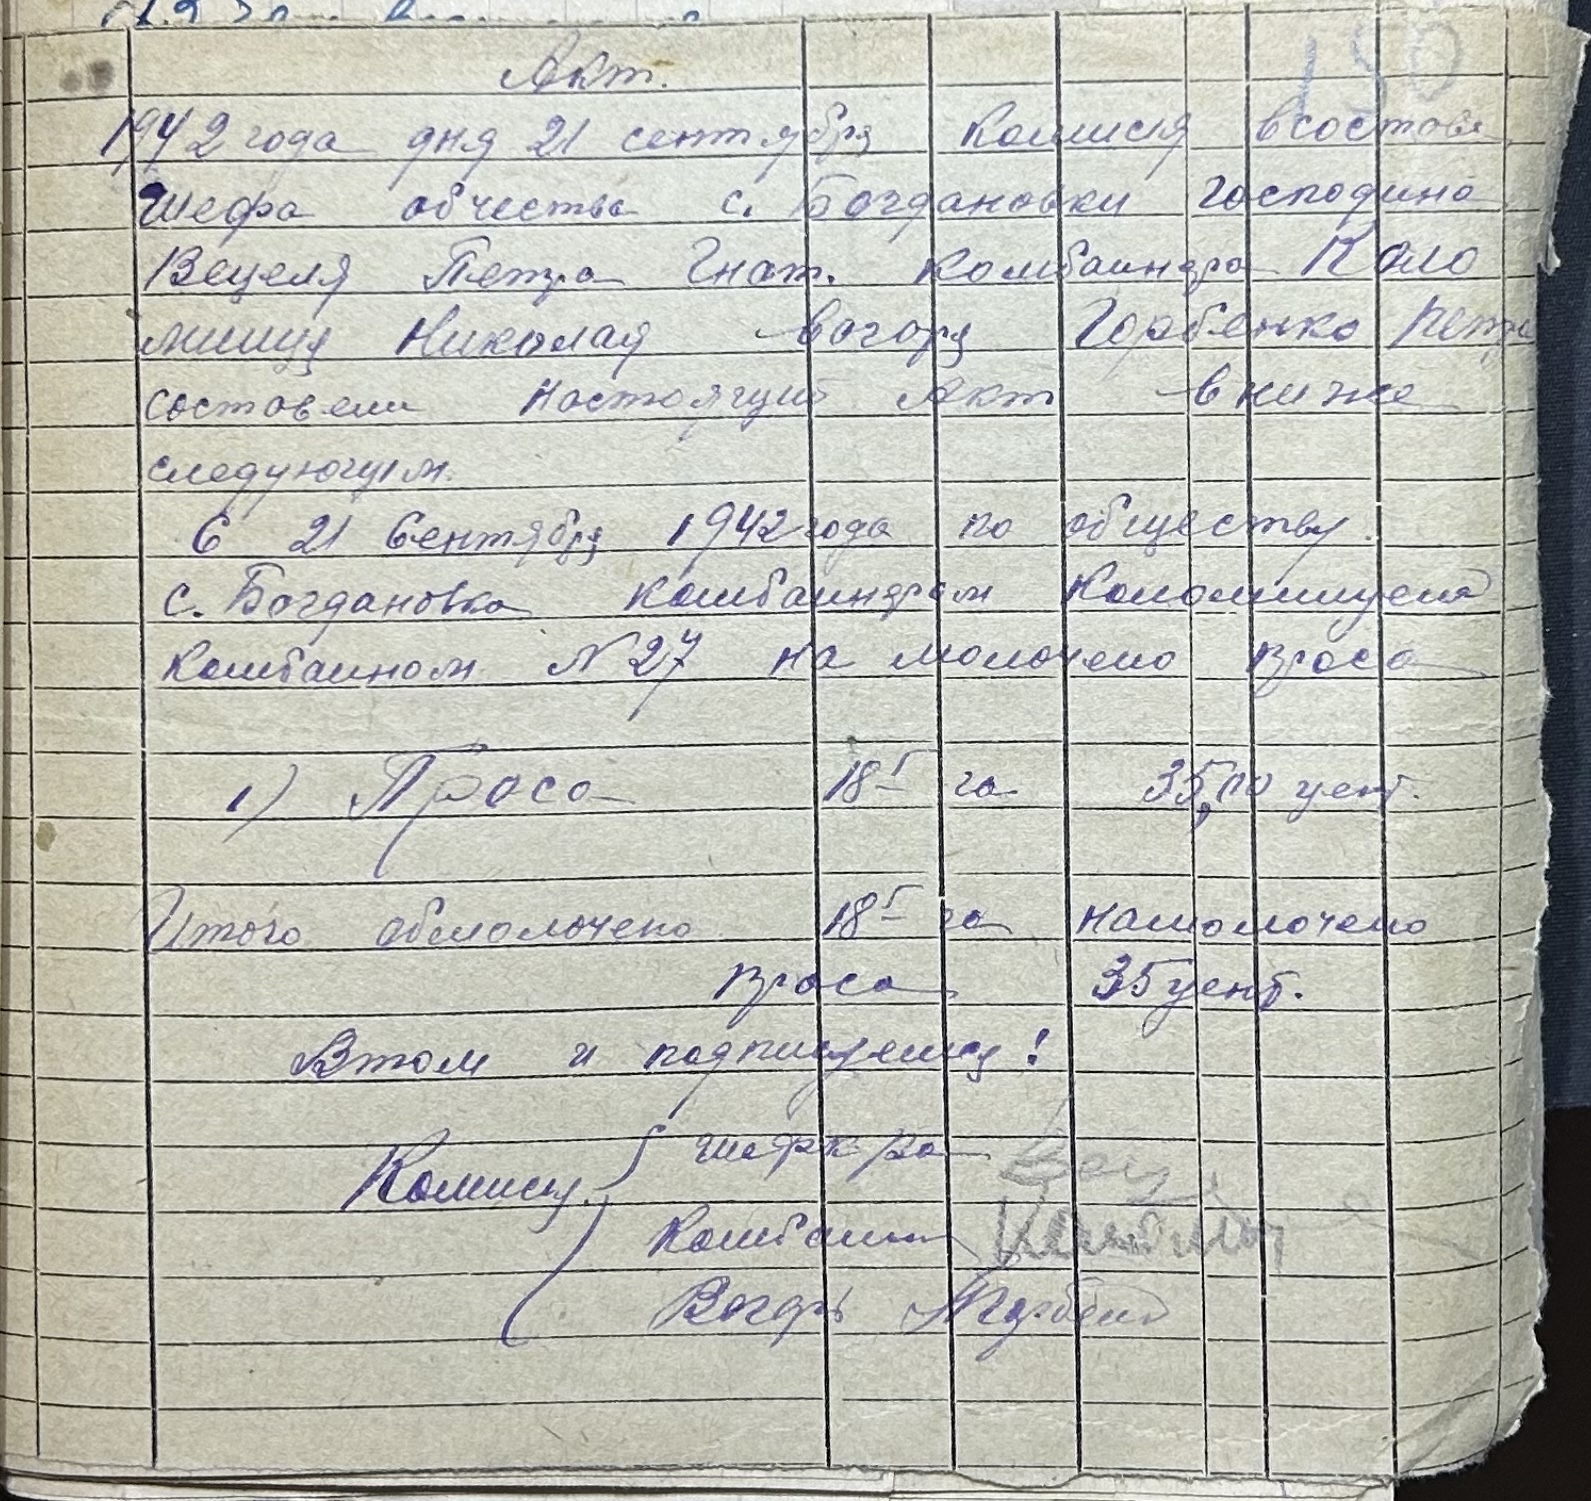 150
Акт.
1942 года дня 21 сентября Комисия всоставе
Шефа обчества с. Богдановки господина
Вецеля Петра Гнат. Комбаиндра Коло
мицця Николая вогаря Горбенко Петра
составели настоящий Акт в ниже
следующем.
С 21 Сентября 1942 года по обществу
с. Богдановка комбаиндром Коломиицем
Комбаином N 27 на молочено проса
1) Проса 18⁵ га 35,00 цент.
Итого обмолочено 18⁵ га намолочено
проса 35 цент.
Втом и подписуемся!
Комисия шеф
Комбаин
Вогарь Горбенко